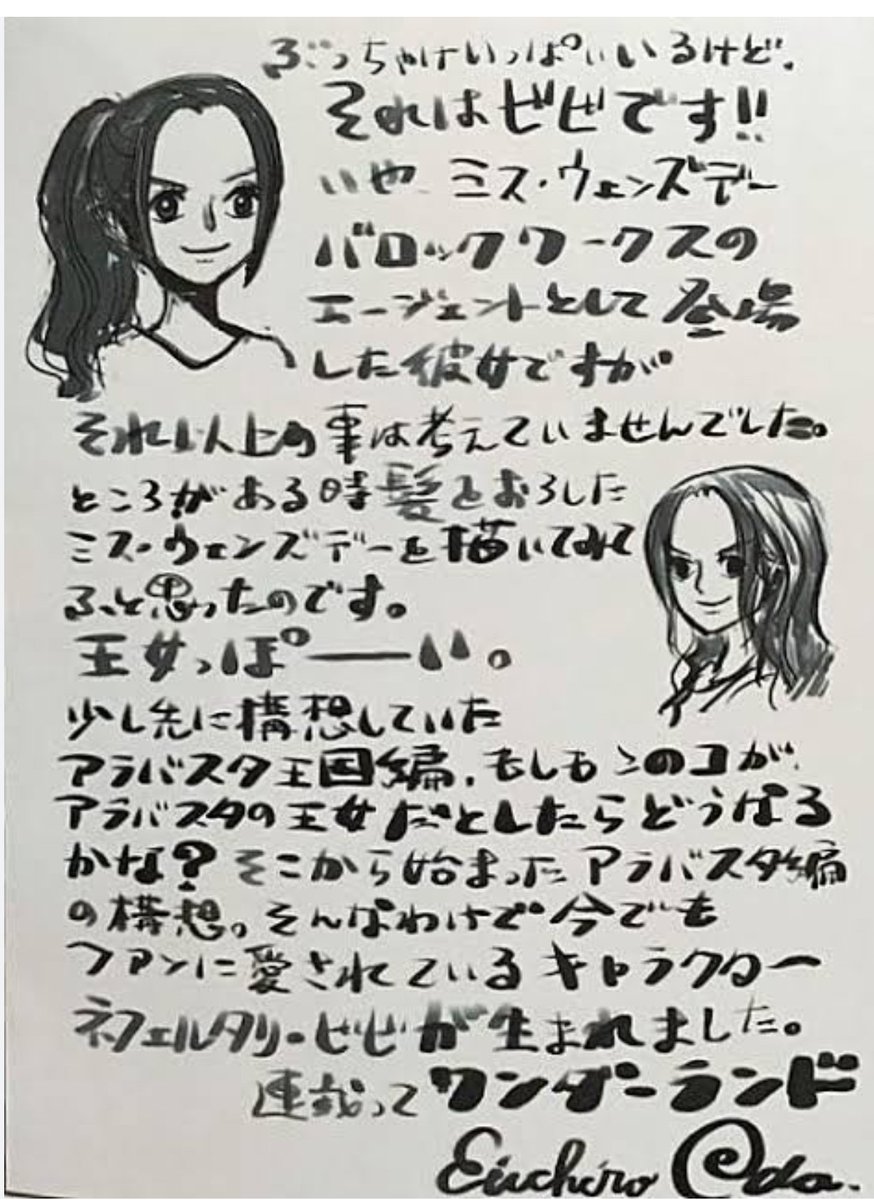 ぶっちゃけいっぱいいるけど、
それはビビです!!
いや、ミス・ウェンズデー
バロックワークスの
エージェントとして登場
した彼女ですが
それ以上の事は考えていませんでした。
ところがある時髪をおろした
ミス・ウェンズデーを描いてみて
ふと思ったのです。
王女っぽーい。
少し先に構想していた
アラバスタ王国編、もしもこのコが、
アラバスタの王女だとしたらどうなる
かな?そこから始まったアラバスタ編
の構想。そんなわけで今でも
ファンに愛されているキャラクター
ネフェルタリ・ビビが生まれました。
連載ってワンダーランド
Eiichiro Oda.